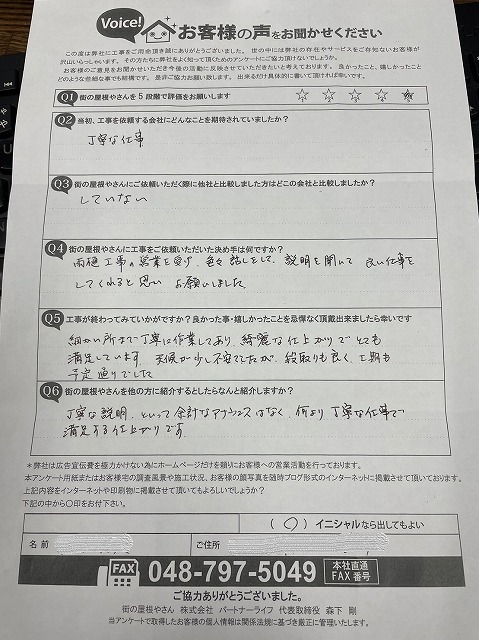 Voice!
お客様の声をお聞かせください
この度は弊社に工事をご用命頂き誠にありがとうございました。世の中には弊社の存在やサービスをご存知ないお客様が
沢山いらっしゃいます。その方たちに弊社をよく知って頂くためのアンケートにご協力頂けないでしょうか？
お客様のご意見をお聞かせいただき今後の活動に反映させていただきたいと考えております。良かったこと、嬉しかったこと
どのような些細な事でも結構です。是非ご協力お願い致します。出来るだけ具体的に書いて頂ければ幸いです。
Q1 街の屋根やさんを5段階で評価をお願いします ☆ ☆ ☆ ☆ ★
Q2 当初、工事を依頼する会社にどんなことを期待されていましたか？
丁寧な仕事
Q3 街の屋根やさんにご依頼いただく際に他社と比較しました方はどこの会社と比較しましたか？
していない
Q4 街の屋根やさんに工事をご依頼いただいた決め手は何ですか？
雨樋工事の営業を受け、色々話しをして、説明を聞いて 良い仕事を
してくれると思い お願いしました
Q5 工事が終わってみていかがですか？良かった事・嬉しかったことを忌憚なく頂戴出来ましたら幸いです
細かい所まで丁寧に作業してあり、綺麗な仕上がりでとても
満足しています。天候が少し不安でしたが、段取りも良く、工期も
予定通りでした
Q6 街の屋根やさんを他の方に紹介するとしたらなんと紹介しますか？
丁寧な説明、といって余計なアナウンスはなく、何より丁寧な仕事で
満足する仕上がりです。
＊弊社は広告宣伝費を極力かけない為にホームページだけを頼りにお客様への営業活動を行っております。
本アンケート用紙またはお客様宅の調査風景や施工状況、お客様の顔写真を随時ブログ形式のインターネットに掲載させて頂いております。
上記内容をインターネットや印刷物に掲載させて頂いてもよろしいでしょうか？
下記の中から〇印をお付下さい。
（ 〇 ）イニシャルなら出してもよい
名 前 ご住所
FAX 048-797-5049 本社直通
FAX番号
ご協力ありがとうございました。
街の屋根やさん 株式会社 パートナーライフ 代表取締役 森下 剛
当アンケートで取得したお客様の個人情報は関係法規に基づき厳正に管理いたします。